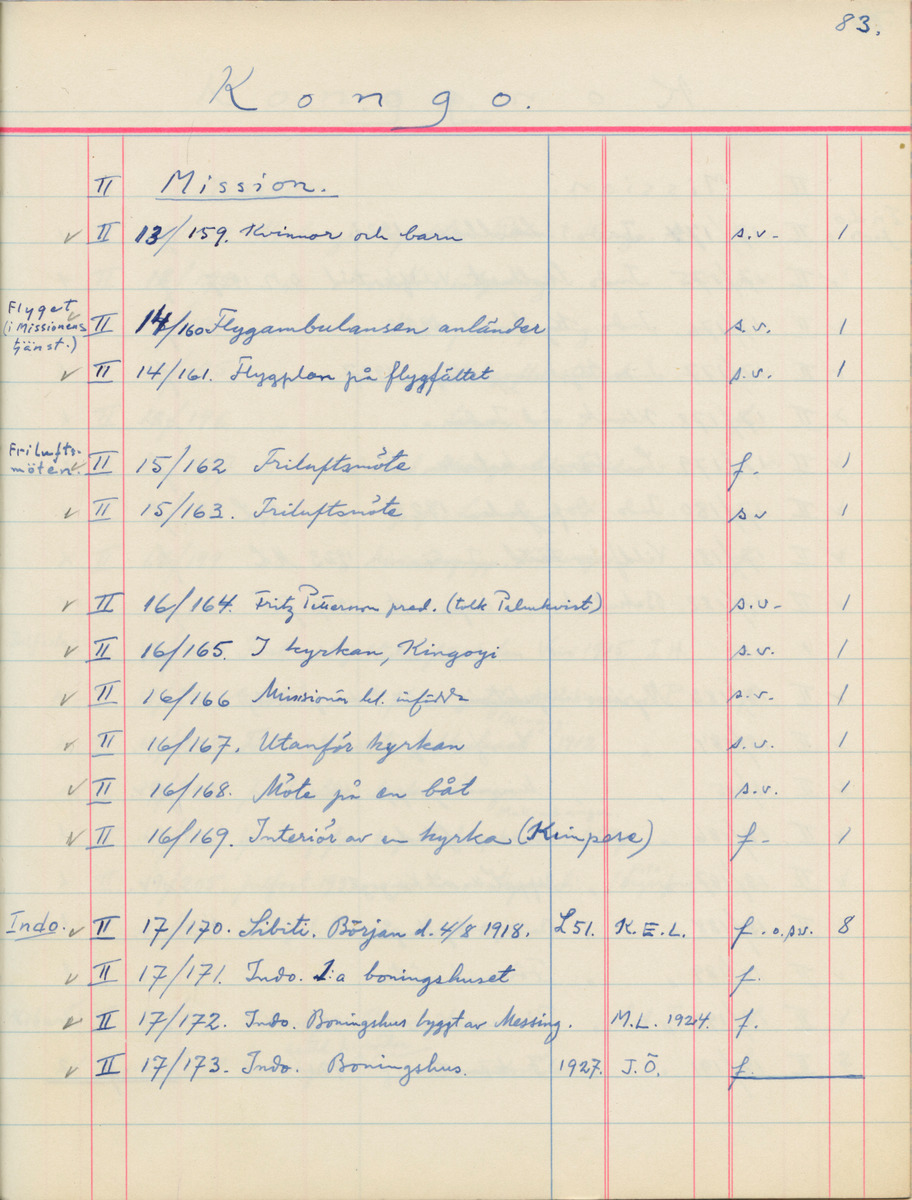 83.
Kongo.
II Mission.
✓ II 13/159. Kvinnor och barn s.v. 1
Flyget
(i Missionens
tjänst.)
✓ II 14/160 Flygambulansen anländer s.v. 1
✓ II 14/161. Flygplan på flygfältet s.v. 1
Frilufts-
möten.
✓ II 15/162 Friluftsmöte f. 1
✓ II 15/163. Friluftsmöte s.v 1
✓ II 16/164. Fritz Petterson pred. (tolk Palmkvist) s.v. 1
✓ II 16/165. I kyrkan, Kingoyi s.v. 1
✓ II 16/166 Missionär bl. infödda s.v. 1
✓ II 16/167. Utanför kyrkan s.v. 1
✓ II 16/168. Möte på en båt s.v. 1
✓ II 16/169. Interiör av en kyrka (Kimpese) f. 1
Indo. ✓ II 17/170. Sibiti. Början d. 4/8 1918. L51. K.E.L. f. o. sv. 8
✓ II 17/171. Indo. 1:a boningshuset f.
✓ II 17/172. Indo. Boningshus byggt av Messing. M.L. 1924. f.
✓ II 17/173. Indo. Boningshus. 1927. J.Ö. f.